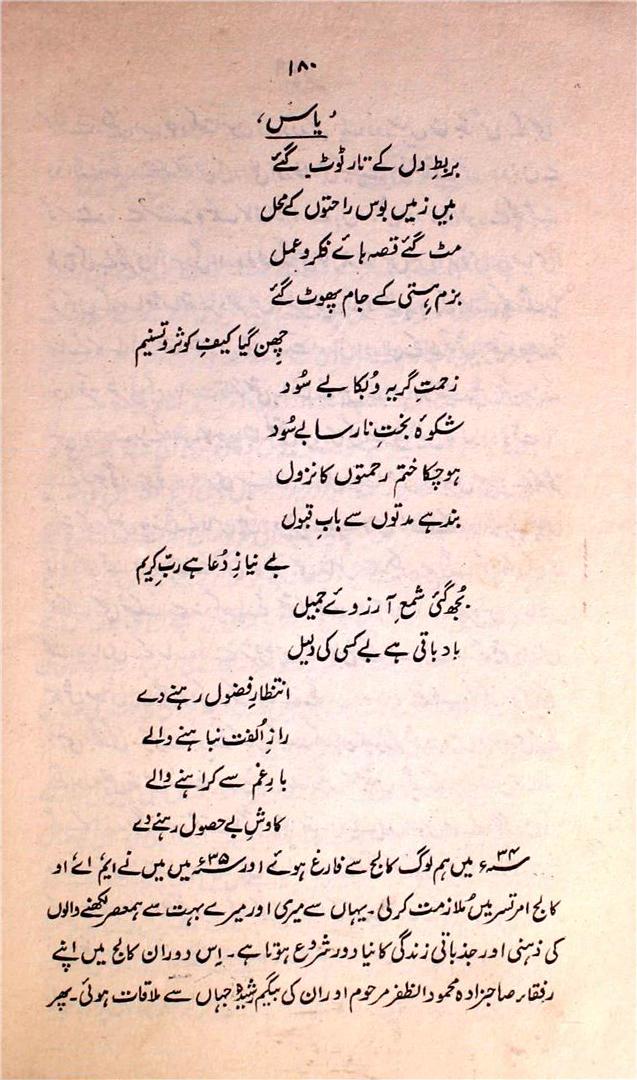 ۱۸۰
'یاس'
بربطِ دل کے تار ٹوٹ گئے
ہیں زمیں بوس راحتوں کے محل
مٹ گئے قصہ ہائے فکر و عمل
بزمِ ہستی کے جام پھوٹ گئے
چھن گیا کیفِ کوثر و تسنیم
زحمتِ گریہ و بُکا بے سُود
شکوۂ بختِ نارسا بے سُود
ہوچکا ختم رحمتوں کا نزول
بند ہے مدتوں سے بابِ قبول
بے نیازِ دُعا ہے ربِّ کریم
بُجھ گئی شمعِ آرزوئے جمیل
یاد باقی ہے بے کسی کی دلیل
انتظارِ فضول رہنے دے
رازِ اُلفت نباہنے والے
بارِ غم سے کراہنے والے
کاوشِ بے حصول رہنے دے
۳۴ء میں ہم لوگ کالج سے فارغ ہوئے اور ۳۵ء میں میں نے ایم اے او
کالج امرتسر میں مُلازمت کر لی۔ یہاں سے میری اور میرے بہت سے ہمعصر لکھنے والوں
کی ذہنی اور جذباتی زندگی کا نیا دور شروع ہوتا ہے۔ اِس دوران کالج میں اپنے
رفقاء صاحبزادہ محمود الظفر مرحوم اور ان کی بیگم رشیدہ جہاں سے ملاقات ہوئی۔ پھر